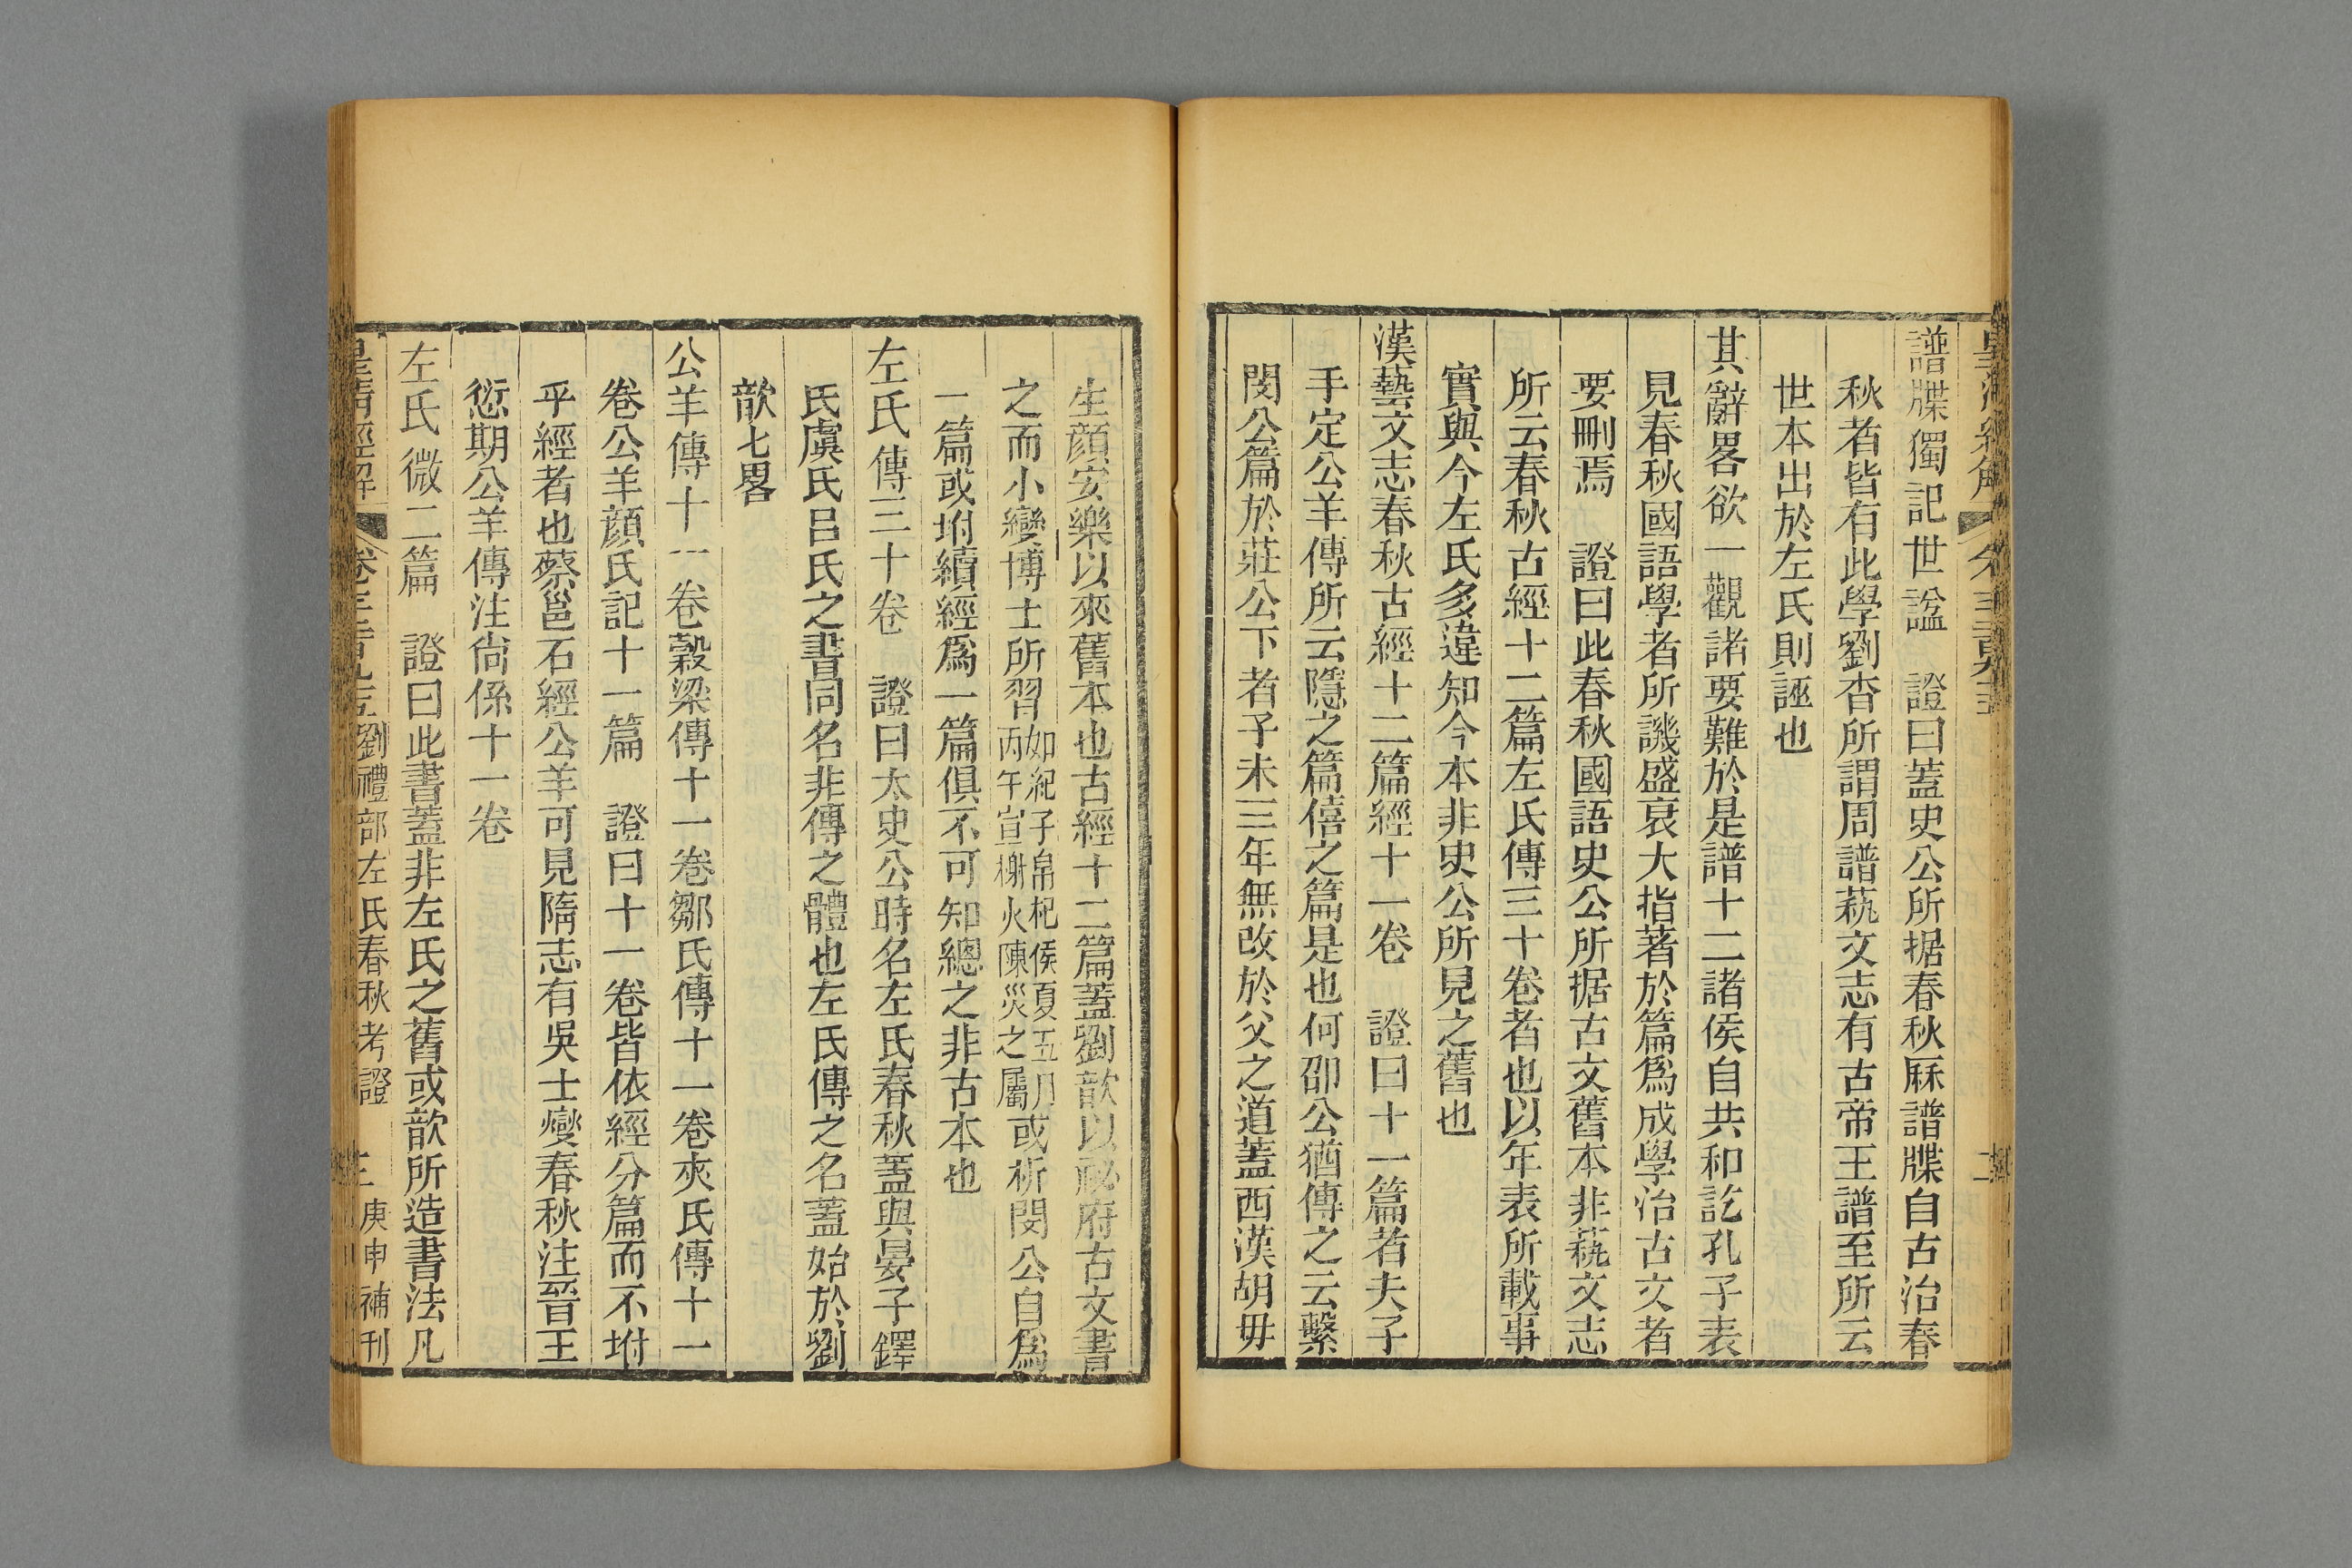 譜牒獨記世謚　證曰蓋史公所据春秋厤譜牒自古治春
秋者皆有此學劉杳所謂周譜蓺文志有古帝王譜至所云
世本出於左氏則誣也
其辭畧欲一觀諸要難於是譜十二諸侯自共和訖孔子表
見春秋國語學者所譏盛衰大指著於篇爲成學治古文者
要刪焉　證曰此春秋國語史公所据古文舊本非蓺文志
所云春秋古經十二篇左氏傳三十卷者也以年表所載事
實與今左氏多違知今本非史公所見之舊也
漢藝文志春秋古經十二篇經十一卷　證曰十一篇者夫子
手定公羊傳所云隱之篇僖之篇是也何邵公猶傳之云繫
閔公篇於莊公下者子未三年無改於父之道蓋西漢胡毋
生顔安樂以來舊本也古經十二篇蓋劉歆以祕府古文書
之而小變博士所習如紀子帛杞侯夏五月丙午宣榭火陳災之屬或析閔公自爲
一篇或坿續經爲一篇俱不可知總之非古本也
左氏傳三十卷　證曰太史公時名左氏春秋蓋與晏子鐸
氏虞氏呂氏之書同名非傳之體也左氏傳之名蓋始於劉
歆七畧
公羊傳十一卷穀梁傳十一卷鄒氏傳十一卷夾氏傳十一
卷公羊顔氏記十一篇　證曰十一卷皆依經分篇而不坿
乎經者也蔡邕石經公羊可見隋志有吳士燮春秋注晉王
愆期公羊傳注尙係十一卷
左氏微二篇　證曰此書蓋非左氏之舊或歆所造書法凡
皇清經解　劉禮部左氏春秋考證　三　庚申補刊